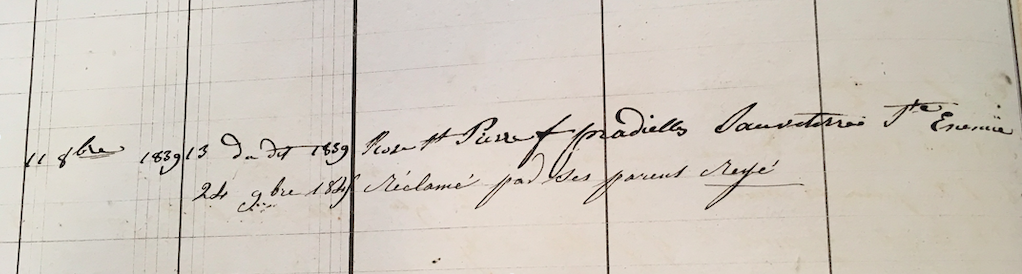 11 8bre 1839 13 du dit 1839 Rose St Pierre f pradielles Sauveterre Ste Enemie
24 9bre 184 Réclamé par ses parent Rayé